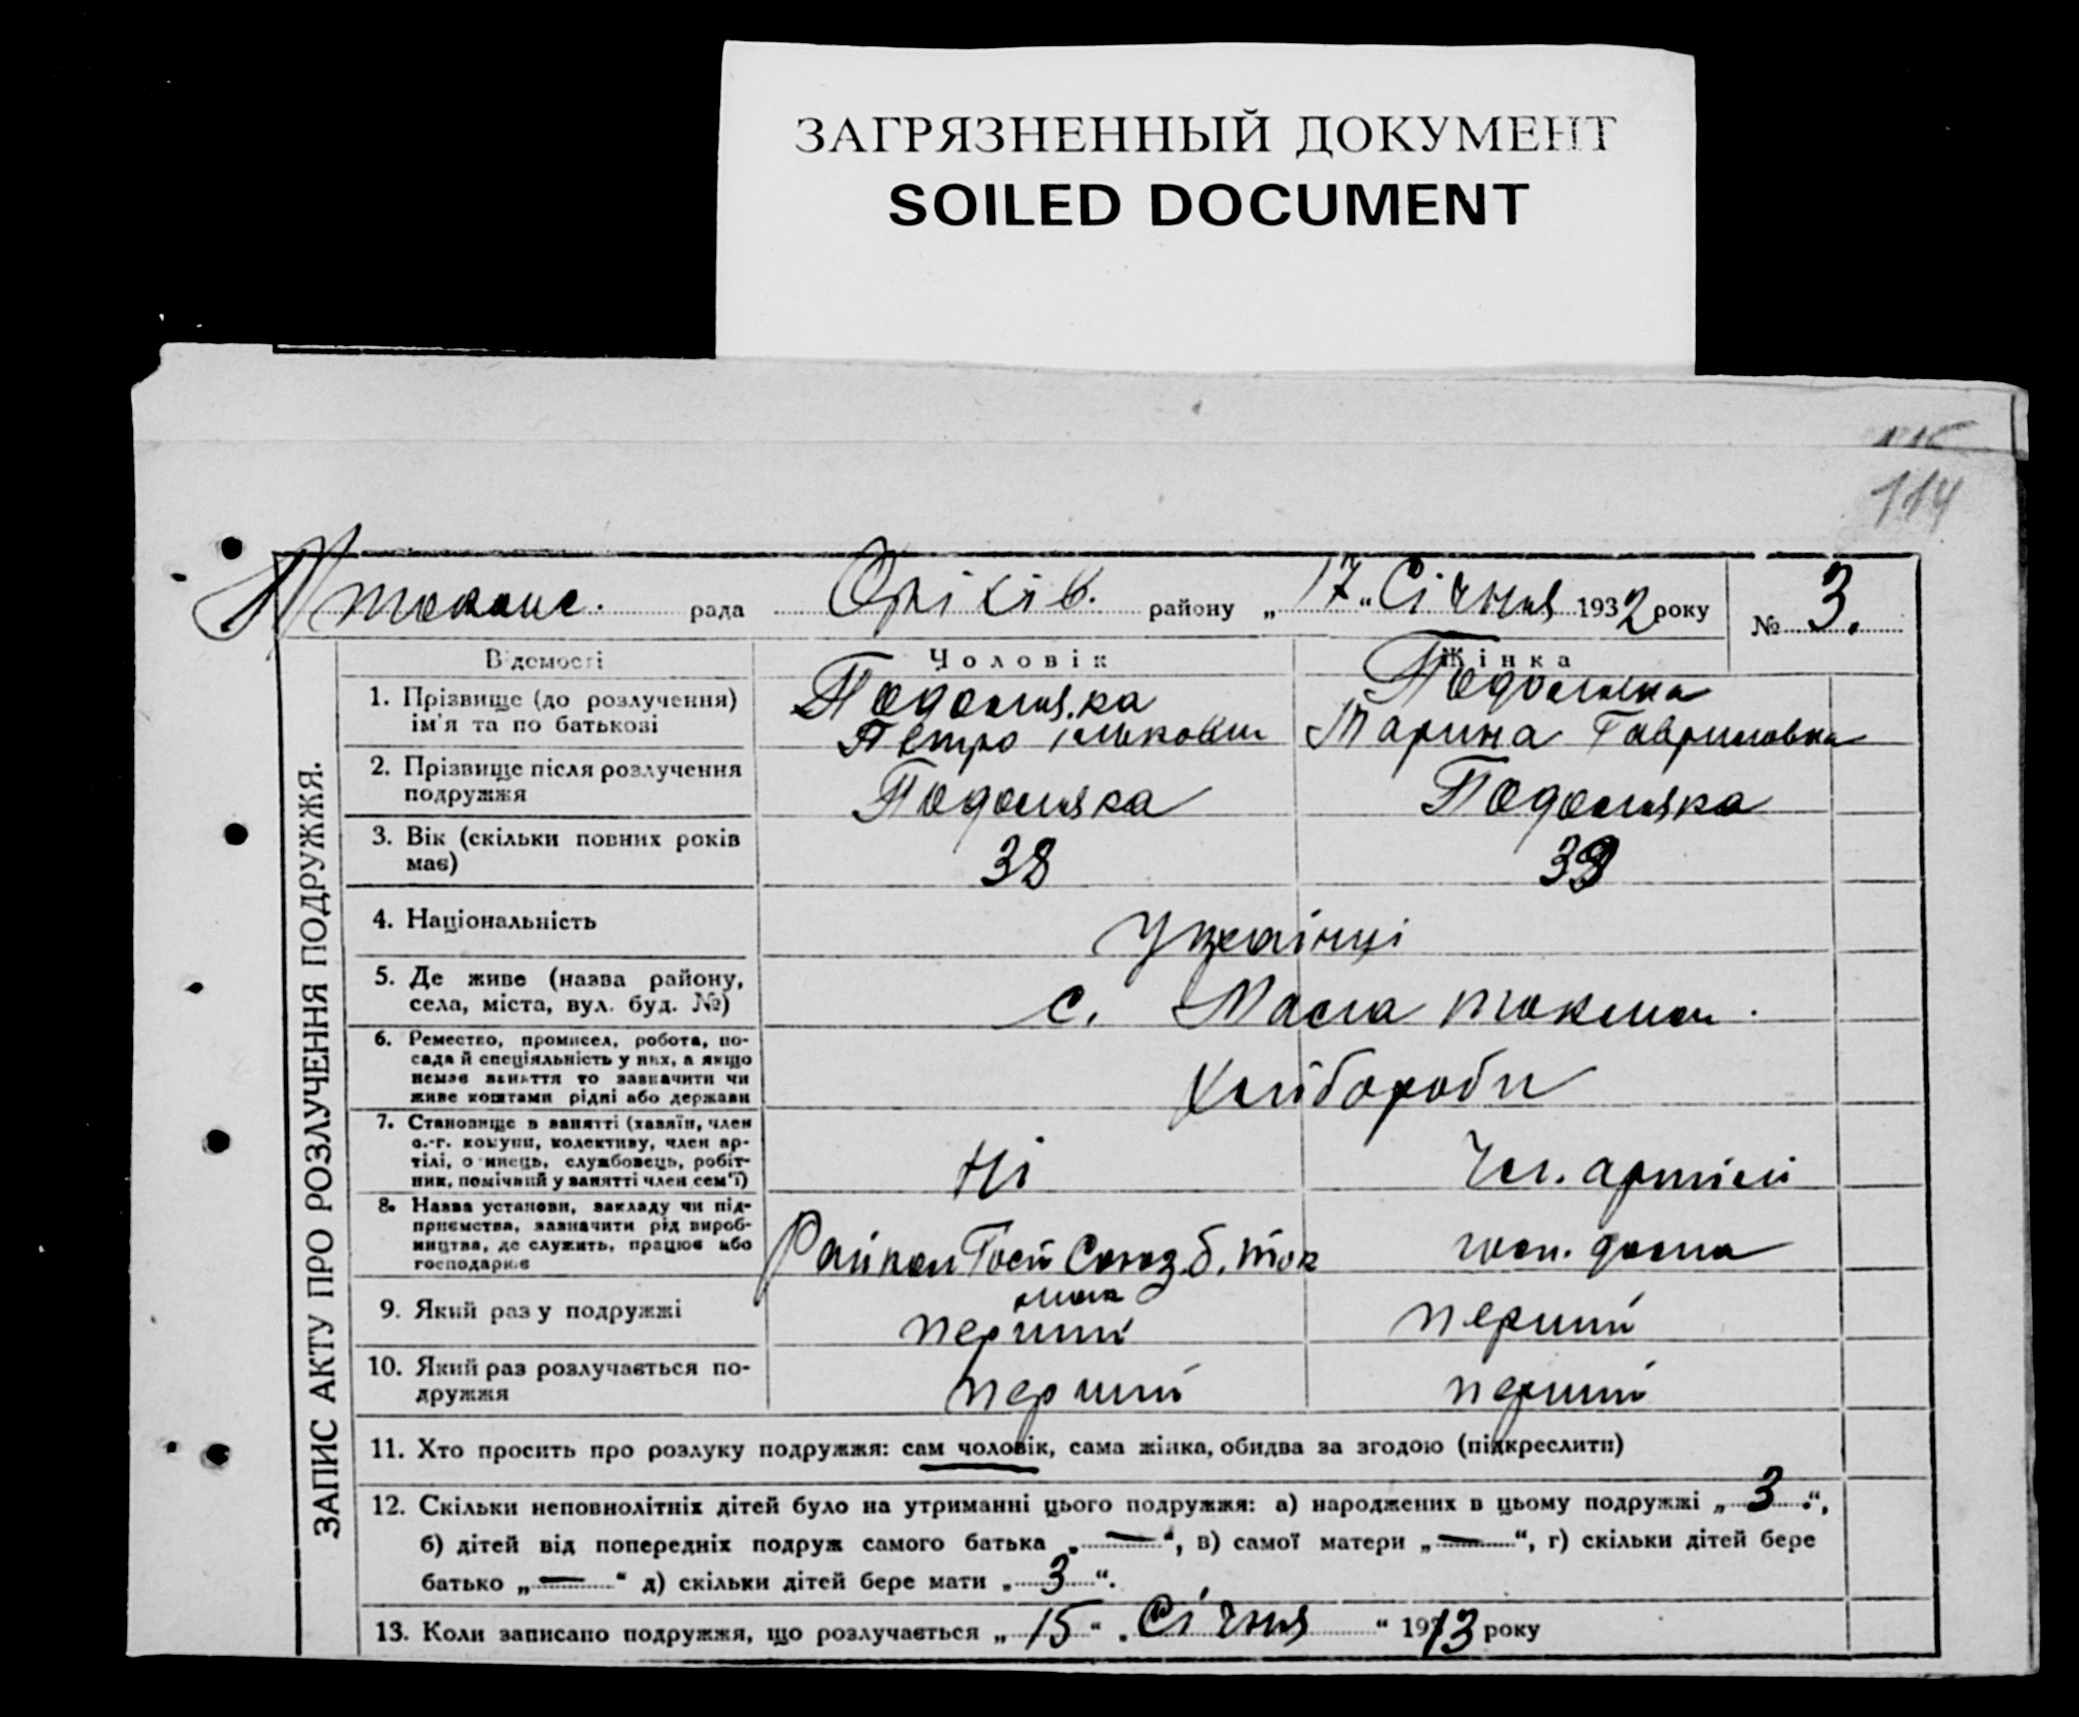 ЗАГРЯЗНЕННЫЙ ДОКУМЕНТ
SOILED DOCUMENT
114
рада Оріхів. району „17“ Січня 1932 року № 3.
ЗАПИС АКТУ ПРО РОЗЛУЧЕННЯ ПОДРУЖЖЯ.
Відомості Чоловік Жінка
1. Прізвище (до розлучення) Подоляка Подоляка
ім'я та по батькові Петро Ількович Марина Гавриловна
2. Прізвище після розлучення
подружжя Подоляка Подоляка
3. Вік (скільки повних років
має) 38 39
4. Національність Українці
5. Де живе (назва району,
села, міста, вул. буд. №) с. Мала токмач.
6. Ремество, промисел, робота, по-
сада й спеціяльність у них, а якщо
немає заняття то зазначити чи
живе коштами рідні або держави Хлібороби
7. Становище в занятті (хазяїн, член
с.-г. комуни, колективу, член ар-
тілі, одинець, службовець, робіт-
ник, помічний у занятті член сем'ї) Ні Чл. артілі
8. Назва установи, закладу чи під-
приємства, зазначити рід вироб-
ництва, де служить, працює або
господарює Союз б. Ток
9. Який раз у подружжі перший перший
10. Який раз розлучається по-
дружжя перший перший
11. Хто просить про розлуку подружжя: сам чоловік, сама жінка, обидва за згодою (підкреслити)
12. Скільки неповнолітніх дітей було на утриманні цього подружжя: а) народжених в цьому подружжі „3“,
б) дітей від попередніх подруж самого батька „—“, в) самої матери „—“, г) скільки дітей бере
батько „—“ д) скільки дітей бере мати „3“.
13. Коли записано подружжя, що розлучається „15“ „Січня“ 1913 року